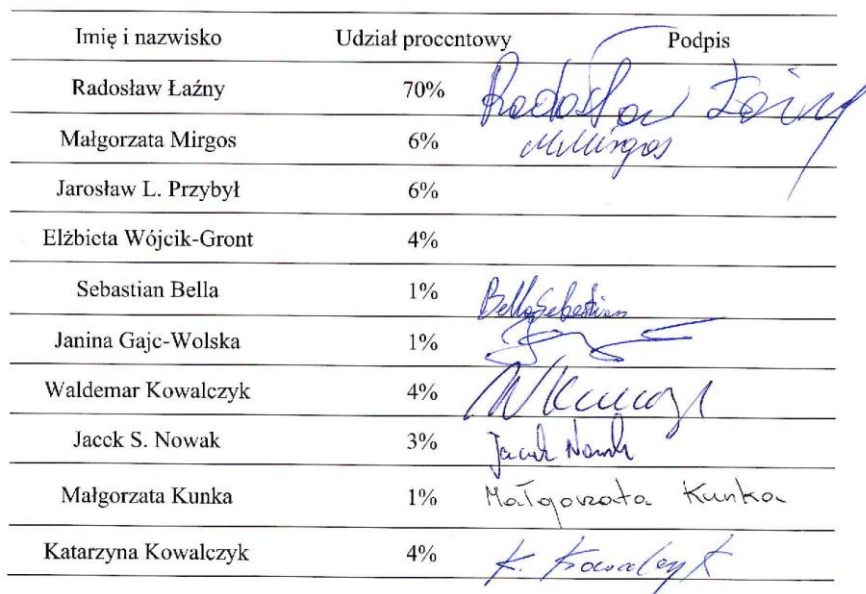 Imię i nazwisko Udział procentowy Podpis
Radosław Łaźny 70% Radosław Łaźny
Małgorzata Mirgos 6% MMirgos
Jarosław L. Przybył 6%
Elżbieta Wójcik-Gront 4%
Sebastian Bella 1% Bella Sebastian
Janina Gajc-Wolska 1%
Waldemar Kowalczyk 4%
Jacek S. Nowak 3% Jacek Nowak
Małgorzata Kunka 1% Małgorzata Kunka
Katarzyna Kowalczyk 4% K. Kowalczyk